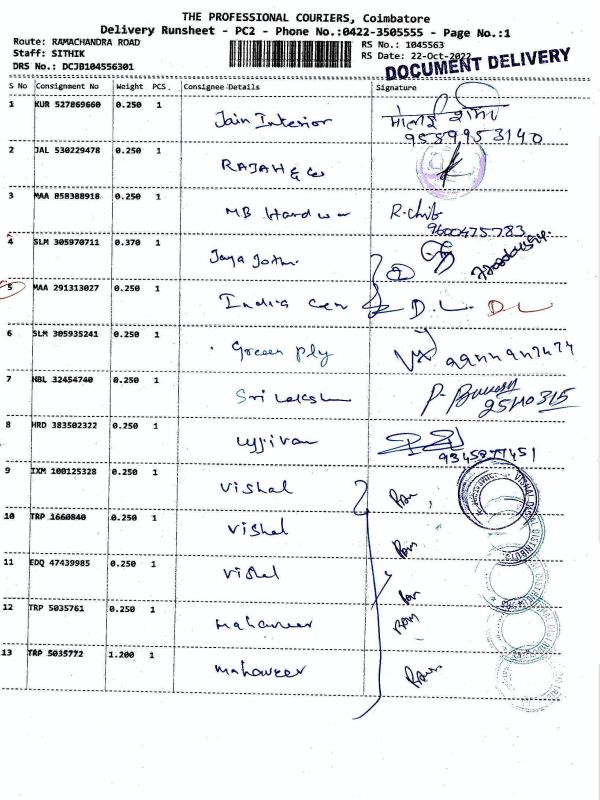 THE PROFESSIONAL COURIERS, Coimbatore
Delivery Runsheet - PC2 - Phone No.:0422-3505555 - Page No.:1
Route: RAMACHANDRA ROAD
Staff: SITHIK
DRS No.: DCJB104556301
RS No.: 1045563
RS Date: 22-Oct-2022
DOCUMENT DELIVERY
S No Consignment No Weight PCS. Consignee Details Signature
1 KUR 527869660 0.250 1 Jain Interior
9589953140
2 JAL 530229478 0.250 1 RAJAH & Co
3 MAA 858388918 0.250 1 MB Hardwar R.Chib
9600475783
4 SLM 305970711 0.370 1 Jaya Jothi
5 MAA 291313027 0.250 1 India Cen D.L. D L
6 SLM 305935241 0.250 1 Green ply
7 HBL 32454740 0.250 1 Sri Lakshm
8 HRD 383502322 0.200 1 ujjivan
9345877451
9 IXM 100125328 0.250 1 Vishal Ram
10 TRP 1660840 0.250 1 Vishal Ram
11 EDQ 47439985 0.250 1 Vishal Ram
12 TRP 5035761 0.250 1 mahaveer Ram
13 TRP 5035772 1.200 1 mahaveer Ram